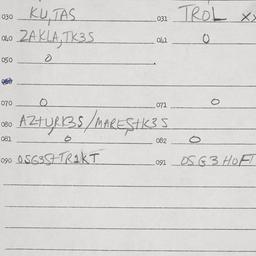 030 KU,TAS 031 TROL XX
040 ZAKLA,TK3S 041 0
050 0
070 0 071 0
080 AZ+URK3S/MARES+K3S
081 0 082 0
090 OSG3S+TR1KT 091 OSG3HOFT